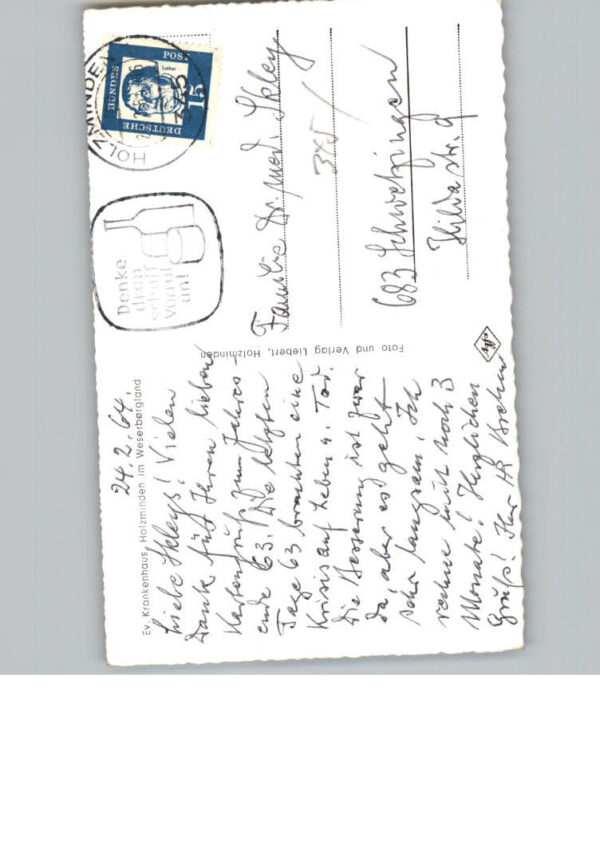 Ev. Krankenhaus, Holzminden im Weserbergland
24.2.64.
Liebe Skleys! Vielen
Dank für Ihren lieben
Kartengruß zum Jahres-
ende 63. Die letzten
Tage 63 brachten eine
Krisis auf Leben u. Tod.
Die Besserung ist zwar
da, aber es geht
sehr langsam. Ich
rechne mit noch 3
Monate! Herzlichen
Gruß! Ihr
Foto und Verlag Liebert, Holzminden
HOLZMINDEN
DEUTSCHE BUNDESPOST
Luther
15
Denke
dran
schaff
Vorrat
an!
Familie Dr. med. Skley
345/
683 Schwetzingen
Hildastr. 9